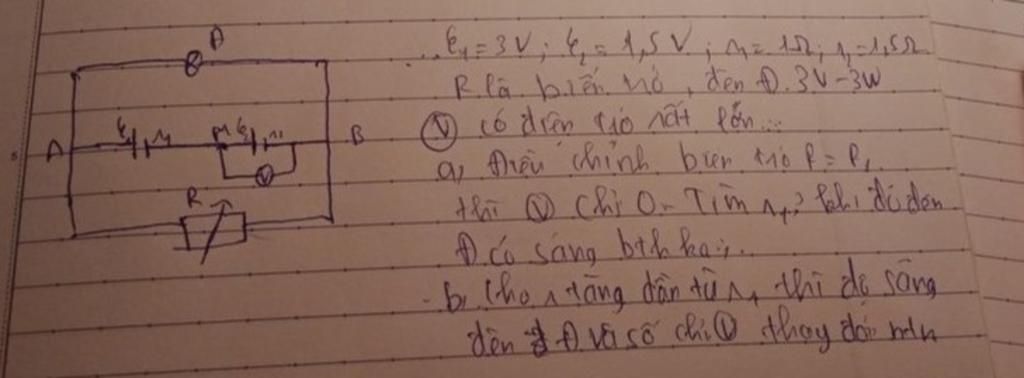 Đ
ξ₁ r₁ M ξ₂ r₂
A B
V
R
ξ₁ = 3V ; ξ₂ = 1,5V ; r₁ = 1Ω ; r₂ = 1,5Ω
R là biến trở, đèn Đ. 3V - 3W
Ⓥ có điện trở rất lớn...
a, Điều chỉnh biến trở R = R₁
thì Ⓥ chỉ 0. Tìm r₁? khi đó đèn
Đ có sáng bth ko?
b, Cho r tăng dần từ r₁ thì độ sáng
đèn Đ và số chỉ Ⓥ thay đổi ntn